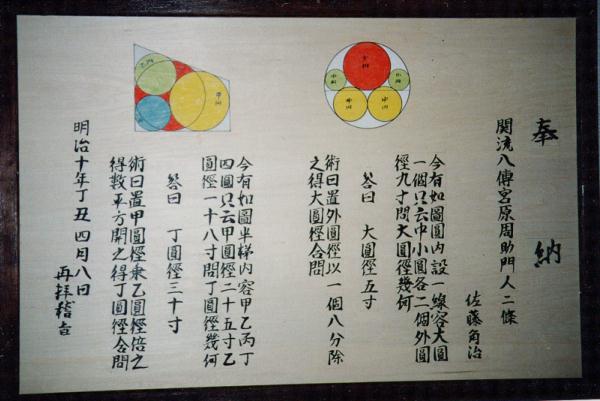 奉納
関流八傳宮原周助門人二條
佐藤角治
今有如圖圓内設一線容大圓
一個只云中小圓各二個外圓
徑九寸問大圓徑幾何
答曰 大圓徑五寸
術曰置外圓徑以一個八分除
之得大圓徑合問
今有如圖半梯内容甲乙丙丁
四圓只云甲圓徑二十五寸乙
圓徑一十八寸問丁圓徑幾何
答曰 丁圓徑三十寸
術曰置甲圓徑乗乙圓徑倍之
得数平方開之得丁圓徑合問
明治十年丁丑四月八日
再拝稽首